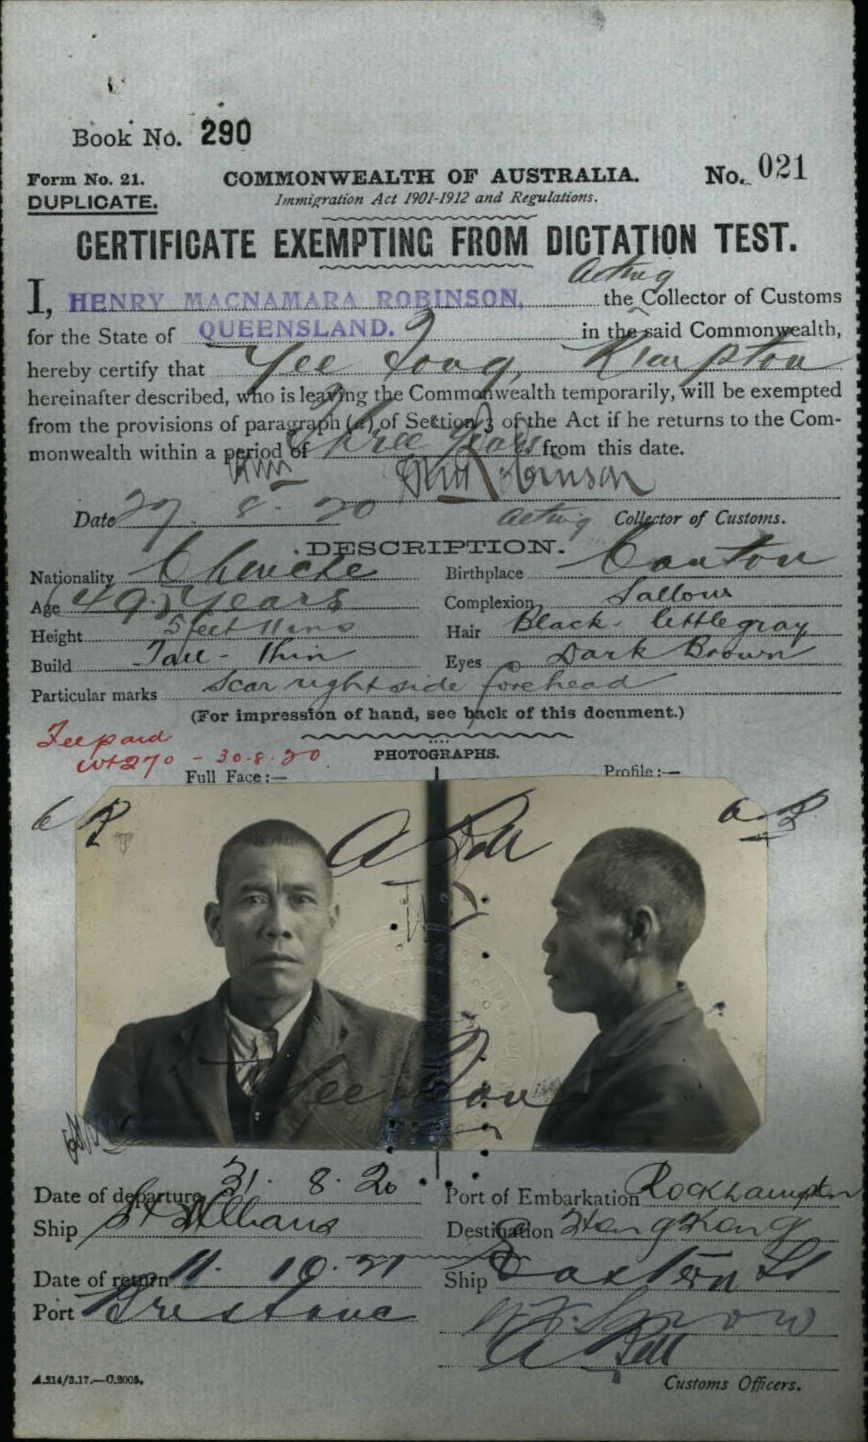 Book No. 290
Form No. 21. COMMONWEALTH OF AUSTRALIA. No. 021
DUPLICATE. Immigration Act 1901-1912 and Regulations.
CERTIFICATE EXEMPTING FROM DICTATION TEST.
Acting
I, HENRY MACNAMARA ROBINSON, the Collector of Customs
for the State of QUEENSLAND. in the said Commonwealth,
hereby certify that Yee Fong,
hereinafter described, who is leaving the Commonwealth temporarily, will be exempted
from the provisions of paragraph (a) of Section 3 of the Act if he returns to the Com-
monwealth within a period of Three Years from this date.
Robinson
Date 27. 8. 20 Acting Collector of Customs.
DESCRIPTION.
Nationality Chinese Birthplace Canton
Age 49 Years Complexion Sallow
Height 5 feet 11 ins Hair Black - little gray
Build Tall - thin Eyes Dark Brown
Particular marks Scar right side forehead
(For impression of hand, see back of this document.)
Fee paid
30.8.20
PHOTOGRAPHS.
Full Face:— Profile:—
A Bell
Yee Fong
Date of departure 31. 8. 20 Port of Embarkation Rockhampton
Ship St Albans Destination Hong Kong
Date of return 11. 10. 21 Ship Eastern
Port Brisbane
A Bell
A.214/3.17.—C.2005. Customs Officers.